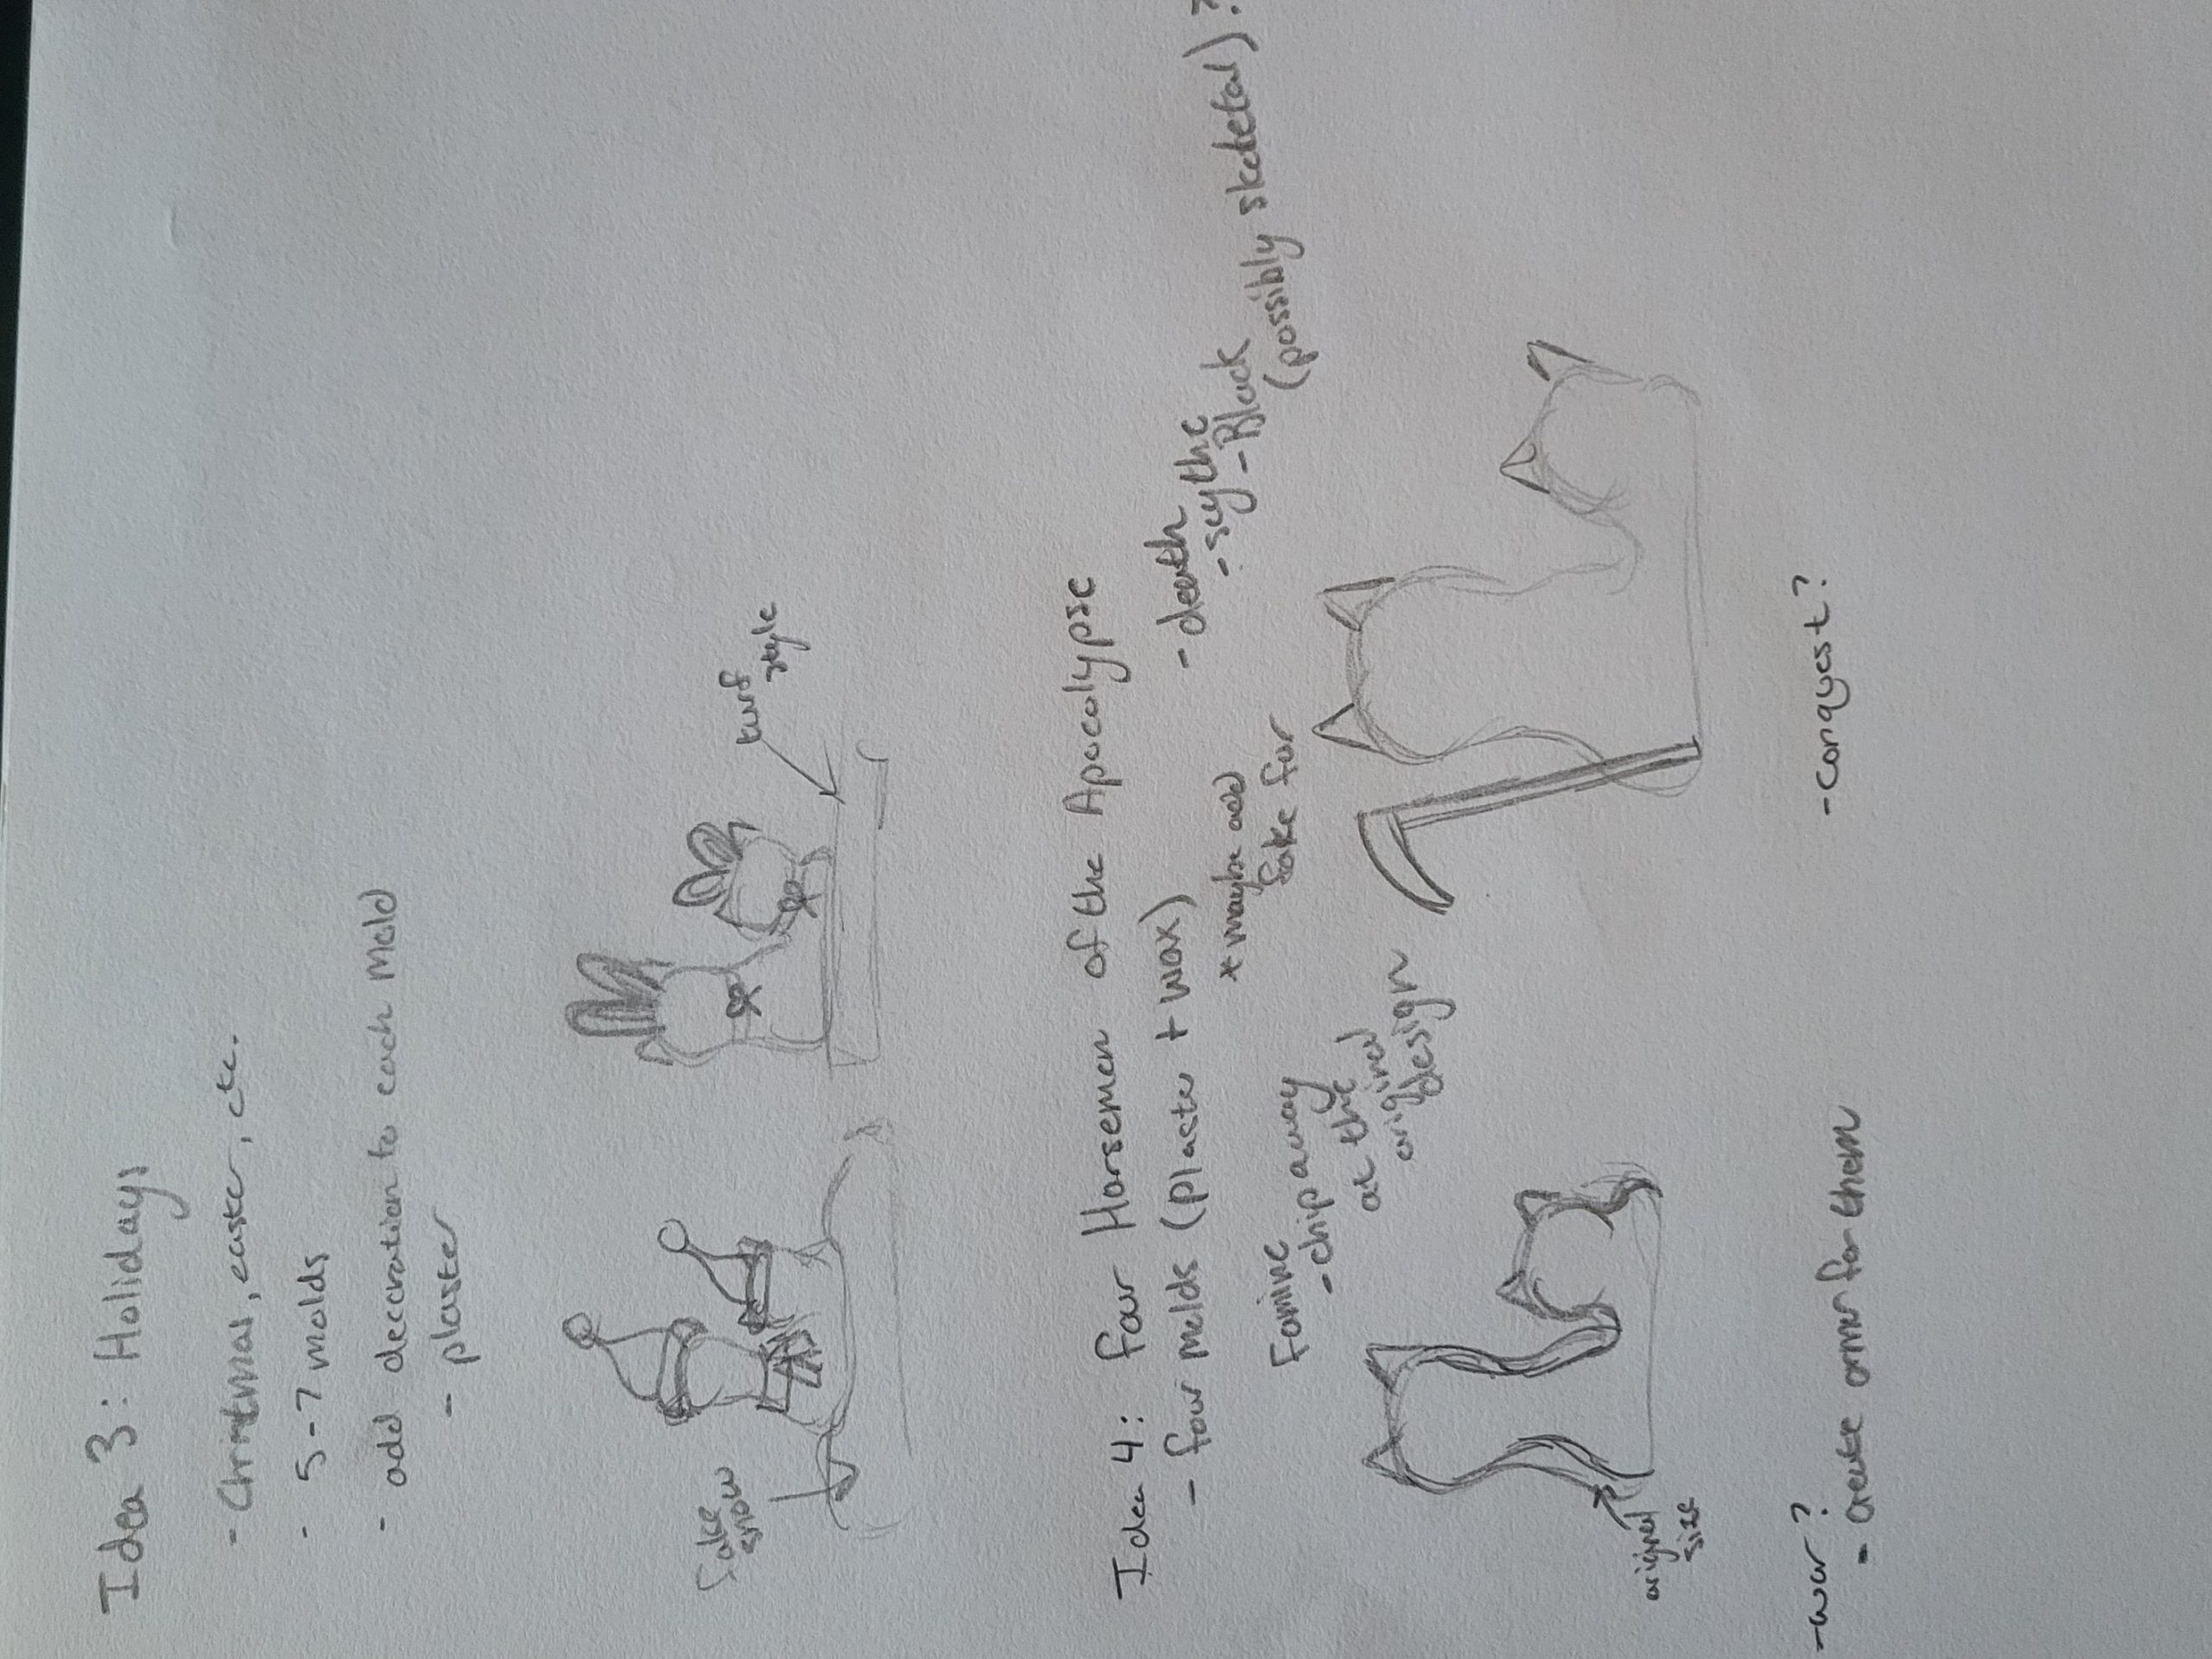 Idea 3: Holidays
- Christmas, easter, etc.
- 5-7 molds
- add decoration to each mold
- plaster
fake
snow
turf
style
Idea 4: four Horsemen of the Apocolypse
- four molds (plaster + wax)
* maybe add
fake fur
Famine
- chip away
at the
original
design
original
size
- death
- scythe
- Black
(possibly skeletal)?
- war?
- create armer for them
- conquest?